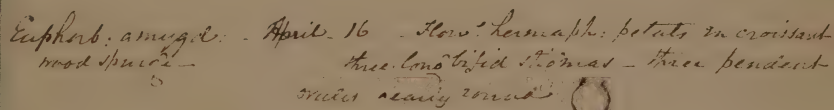 Euphorb: amygd: - April - 16 - Flowr. hermaph: petals en croissant
wood spurge - three long bifid stigmas - three pendent
ovules nearly round